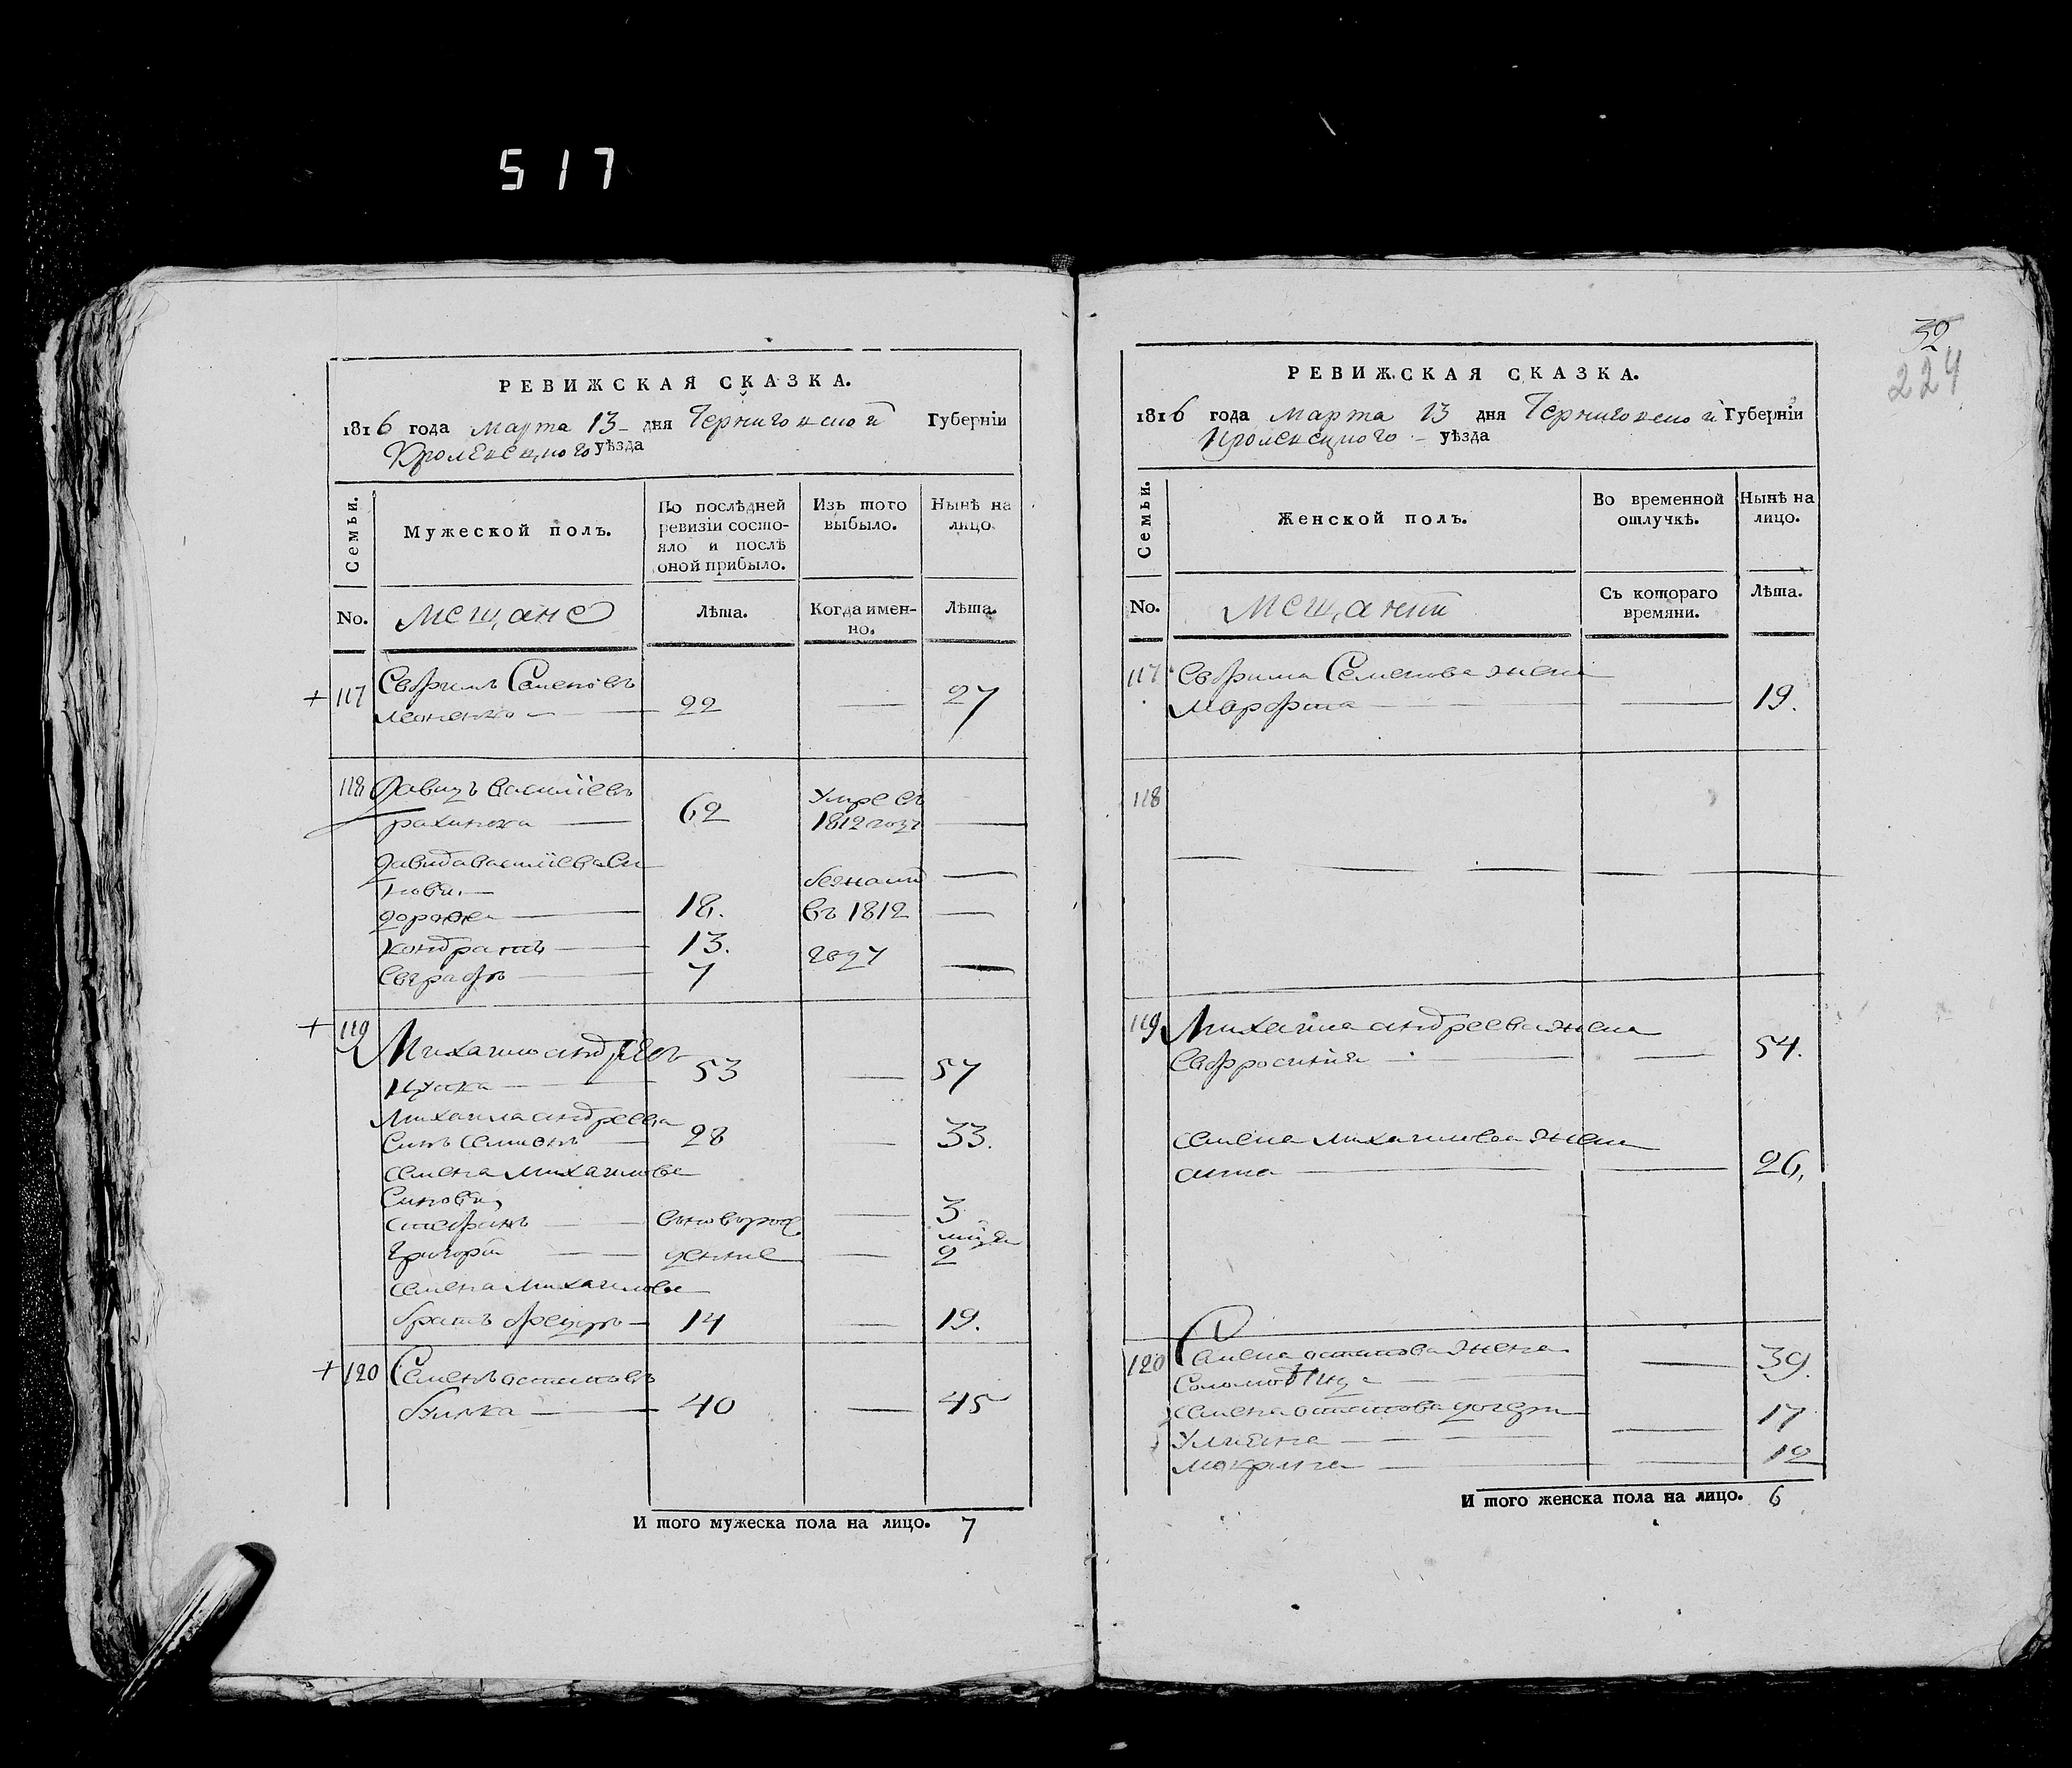 517
РЕВИЖСКАЯ СКАЗКА.
1816 года Марта 13 дня Черниговской Губерніи
Кролевецкого уѣзда
Семьи.
Мужеской полъ.
По послѣдней ревизіи состо-
яло и послѣ оной прибыло.
Изъ того выбыло.
Нынѣ на лицо.
No.
мещане
Лѣта.
Когда имен-
но.
Лѣта.
117 Евфимъ Семеновъ
22 27
118 Давидъ Василіевъ
62
Умре въ
1812 году
Давида Василіева си
нови
18.
въ 1812
Кондратъ 13.
году
Евграфъ 7
119 Михаило Андреевъ
53 57
Михаила Андреева
синъ Семионъ 28 33.
Семена Михаилова
Синови
Стефанъ 3
Григорій 2
Семена Михаилова
братъ 14 19.
120 Семенъ Остаповъ
40 45
И того мужеска пола на лицо. 7
32
224
РЕВИЖСКАЯ СКАЗКА.
1816 года Марта 13 дня Черниговской Губерніи
Кролевецкого уѣзда
Семьи.
Женской полъ.
Во временной
отлучкѣ.
Нынѣ на
лицо.
No.
Съ котораго
времяни.
Лѣта.
117 Евфима Семенова жена
Марфа 19.
118
119 Михаила Андреева жена
Евфросинія 54.
Семена Михаилова жена
анна 26,
120 Семена Остапова жена
39.
Семена Остапова дочери
17
Улияна
Макрина 12
И того женска пола на лицо. 6